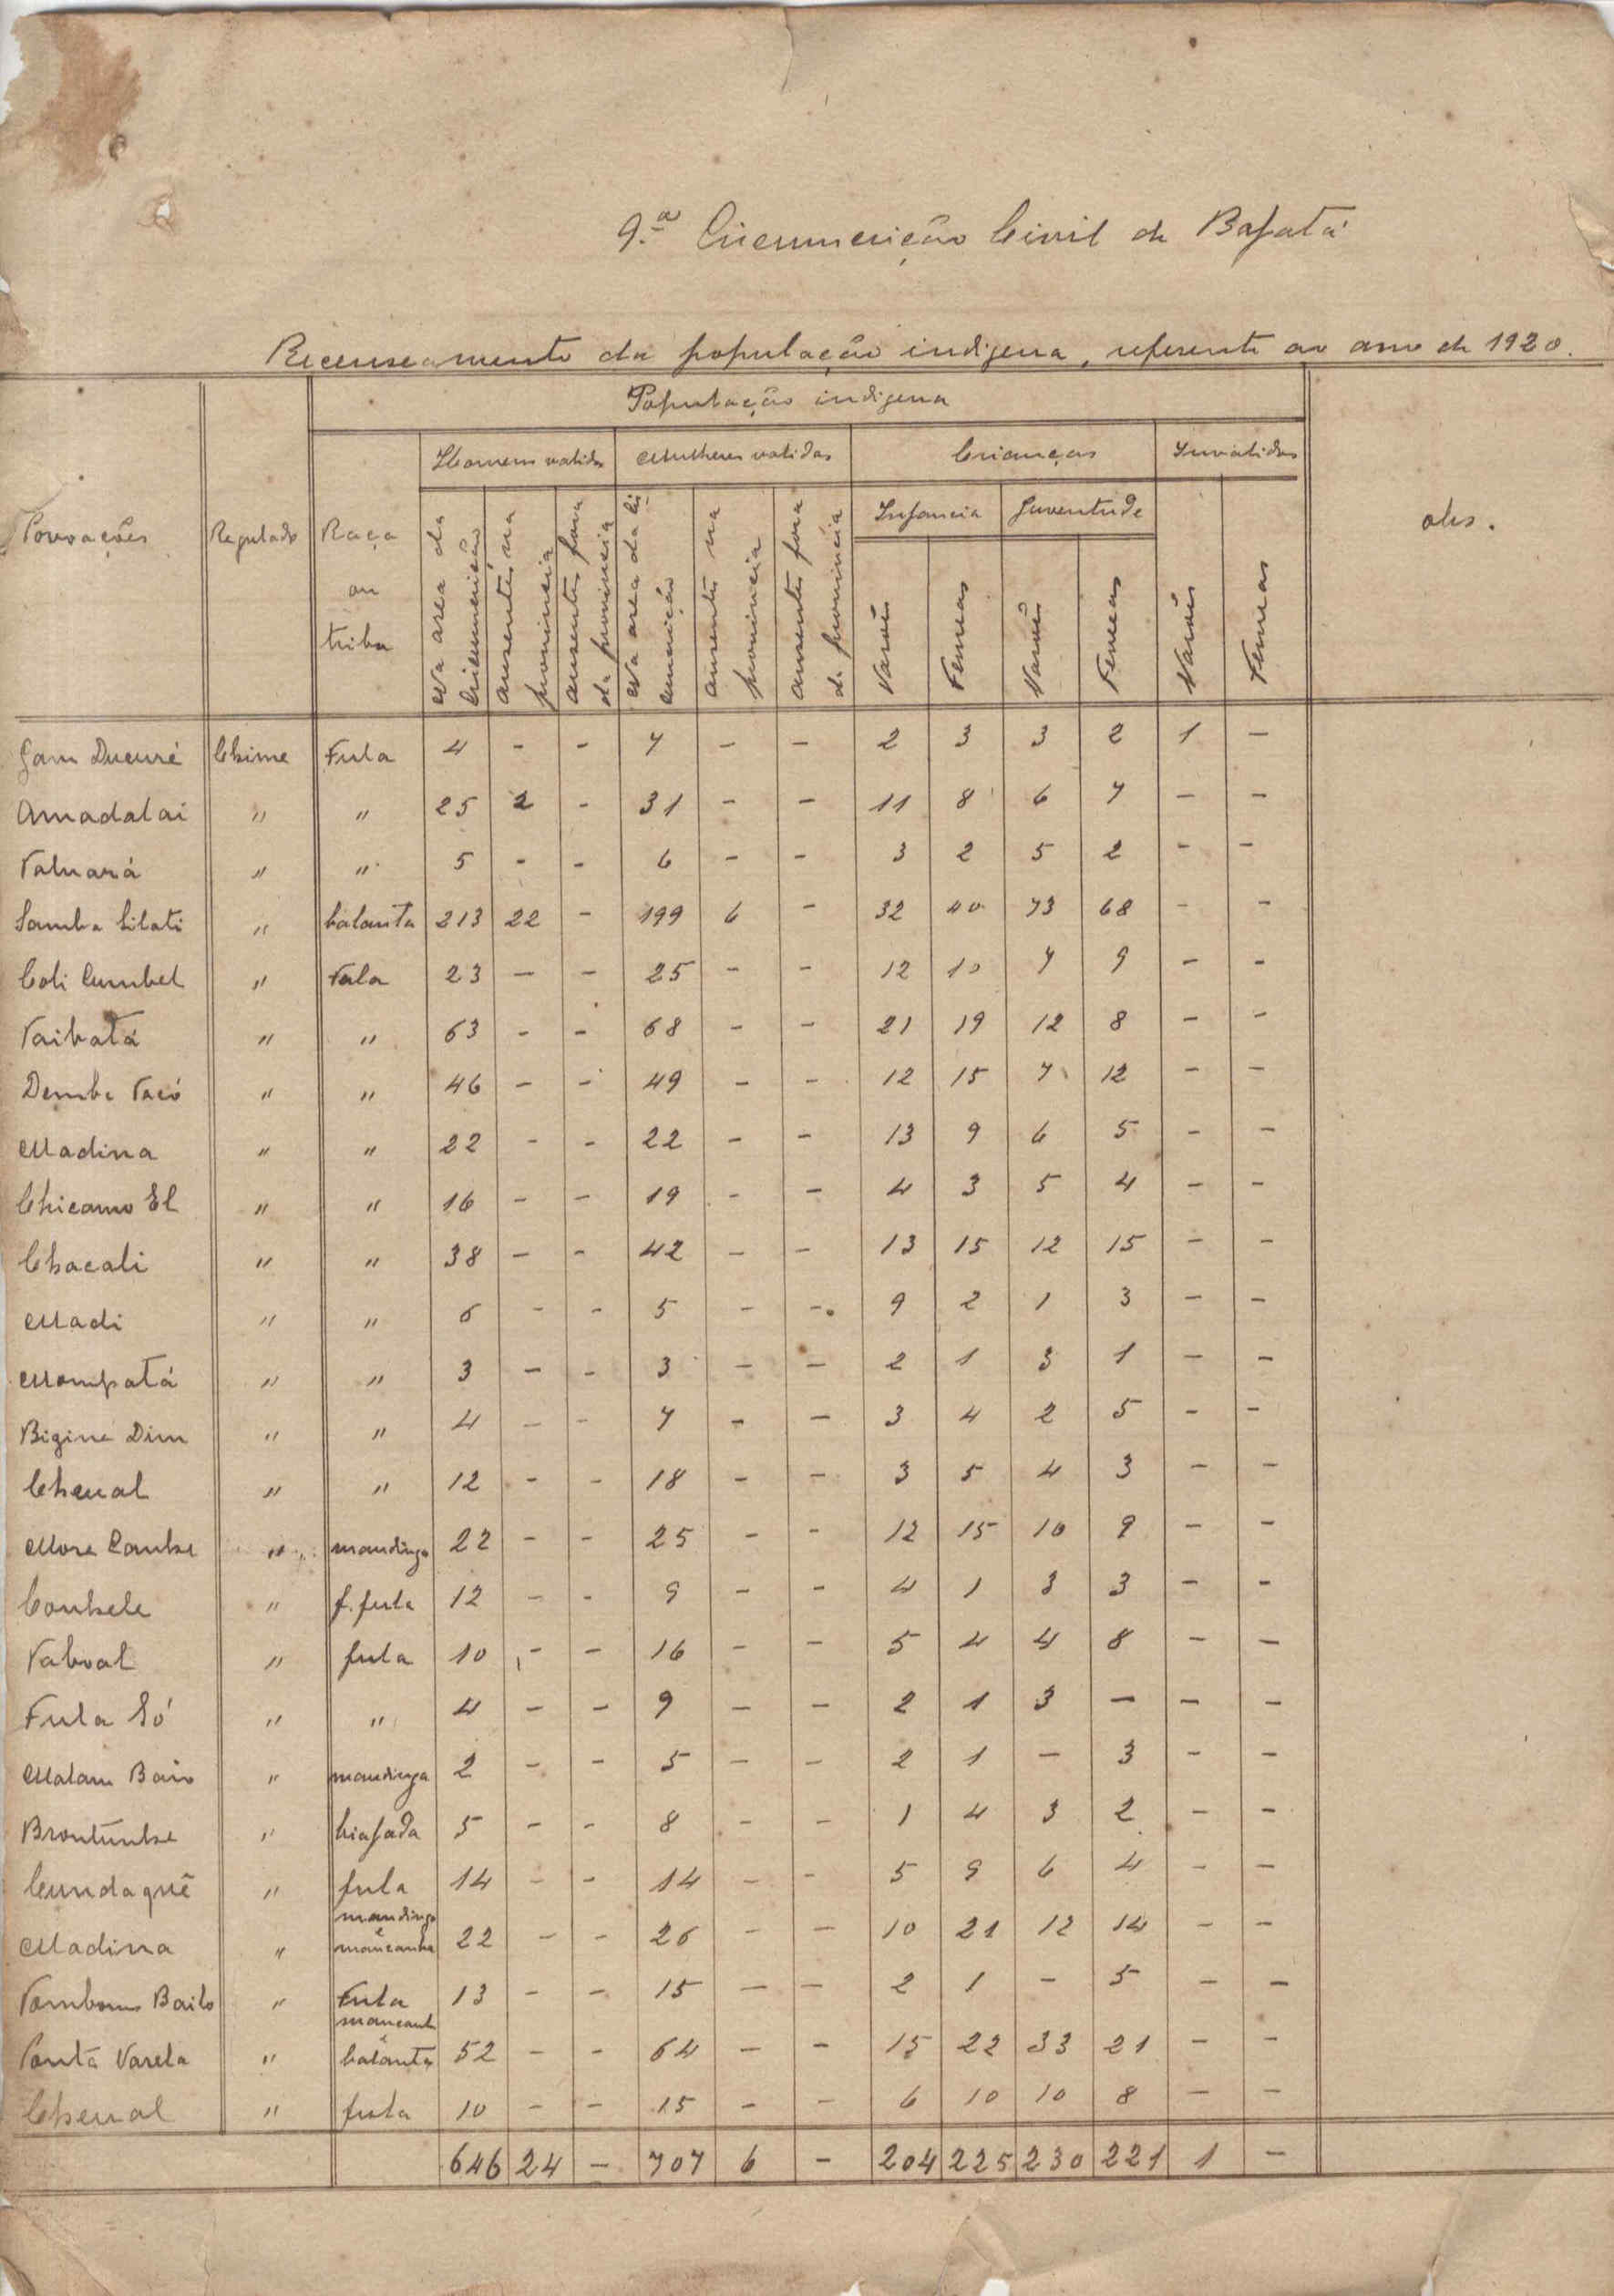 9.ª Circunscrição Civil de Bafatá
Recenseamento da população indigena, referente ao ano de 1920.
População indigena
Homens validos Mulheres validas Crianças Invalidos
Povoações Regulado Raça ou tribu Na area da circunscrição ausentes na provincia ausentes fora da provincia Na area da circunscrição ausentes na provincia ausentes fora da provincia Infancia Juventude obs.
Varões Femeas Varões Femeas Varões Femeas
Gam Ducuré Chime Fula 4 - - 7 - - 2 3 3 2 1 -
Amadalai " " 25 2 - 31 - - 11 8 6 7 - -
" " 5 - - 6 - - 3 2 5 2 - -
Samba Silati " balanta 213 22 - 199 6 - 32 40 73 68 - -
Coli Cumbel " Fula 23 - - 25 - - 12 10 7 9 - -
Taibatá " " 63 - - 68 - - 21 19 12 8 - -
Demba Tacó " " 46 - - 49 - - 12 15 7 12 - -
Madina " " 22 - - 22 - - 13 9 6 5 - -
Chicamo El " " 16 - - 19 - - 4 3 5 4 - -
Chacali " " 38 - - 42 - - 13 15 12 15 - -
Madi " " 6 - - 5 - - 9 2 1 3 - -
Mompatá " " 3 - - 3 - - 2 1 3 1 - -
Bigine Dim " " 4 - - 7 - - 3 4 2 5 - -
" " 12 - - 18 - - 3 5 4 3 - -
More " mandinga 22 - - 25 - - 12 15 10 9 - -
" f. fula 12 - - 9 - - 4 1 3 3 - -
" fula 10 - - 16 - - 5 4 4 8 - -
Fula Só " " 4 - - 9 - - 2 1 3 - - -
Malam Baio " mandinga 2 - - 5 - - 2 1 - 3 - -
" biafada 5 - - 8 - - 1 4 3 2 - -
Cundaguê " fula 14 - - 14 - - 5 9 6 4 - -
Madina " mandinga e mancanha 22 - - 26 - - 10 21 12 14 - -
Bailo " Fula 13 - - 15 - - 2 1 - 5 - -
Ponta Varela " e balanta 52 - - 64 - - 15 22 33 21 - -
" fula 10 - - 15 - - 6 10 10 8 - -
646 24 - 707 6 - 204 225 230 221 1 -